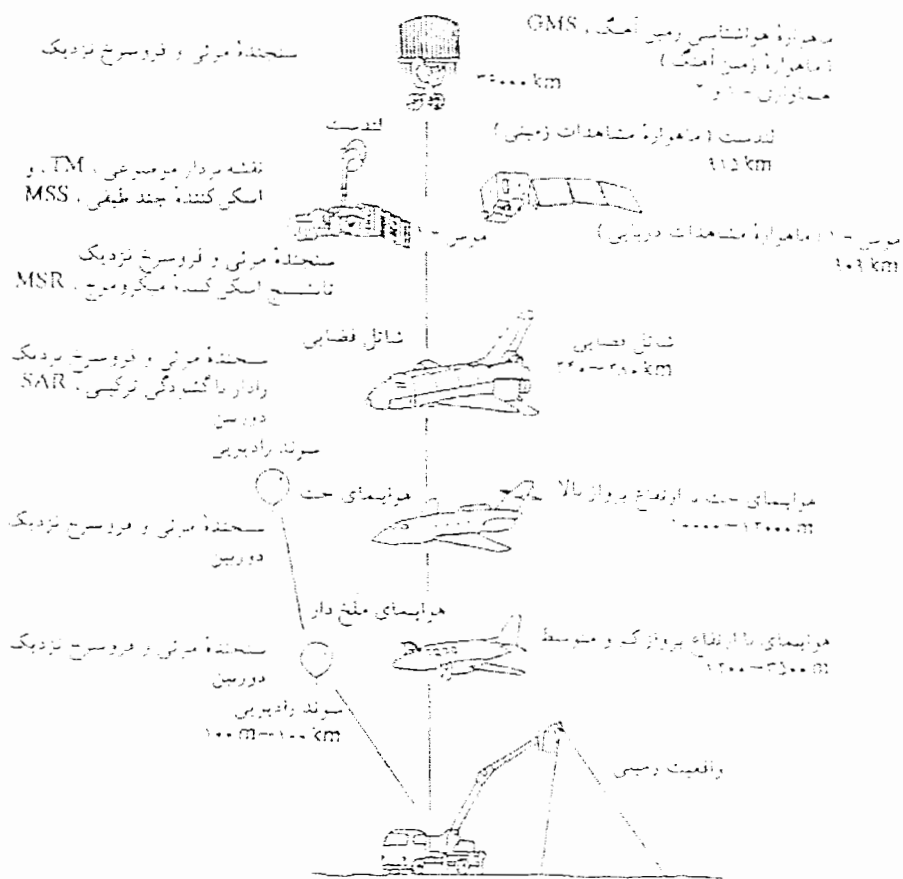 ماهوارهٔ هواشناسی زمین آهنگ ، GMS
( ماهوارهٔ زمین آهنگ )
سنجندهٔ مرئی و فروسرخ نزدیک
۳۶۰۰۰ km
لندست
لندست ( ماهوارهٔ مشاهدات زمینی )
۹۱۵ km
نقشه بردار موضوعی ، TM ، و
اسکن کنندهٔ چند طیفی ، MSS
موس - ۱
موس - ۱ ( ماهوارهٔ مشاهدات دریایی )
۹۰۹ km
سنجندهٔ مرئی و فروسرخ نزدیک
تابش سنج اسکن کنندهٔ میکروموج ، MSR
شاتل فضایی
شاتل فضایی
km
سنجندهٔ مرئی و فروسرخ نزدیک
رادار با گشودگی ترکیبی ، SAR
دوربین
سوند رادیویی
هواپیمای جت
هواپیمای جت با ارتفاع پرواز بالا
۱۰۰۰۰–۱۲۰۰۰ m
سنجندهٔ مرئی و فروسرخ نزدیک
دوربین
هواپیمای ملخ دار
هواپیمای با ارتفاع پرواز کم و متوسط
۱۲۰۰–۳۵۰۰ m
سنجندهٔ مرئی و فروسرخ نزدیک
دوربین
سوند رادیویی
۱۰۰ m–۱۰۰ km
واقعیت زمینی